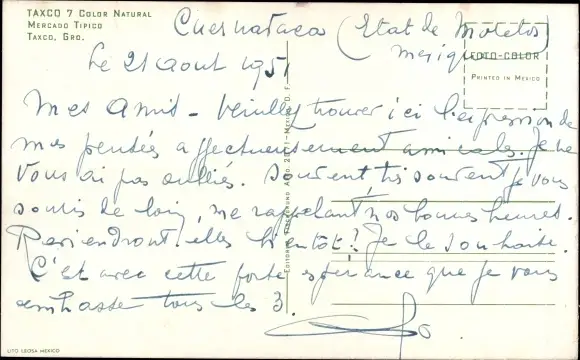 TAXCO 7 COLOR NATURAL
MERCADO TIPICO
TAXCO, GRO.
Cuernavaca (Etat de Morelos)
Mexique
FOTO-COLOR
PRINTED IN MEXICO
Le 21 aout 1951
Mes Amis - Veuillez trouver ici l'expression de
mes pensées affectueusement amicales. Je ne
vous ai pas oubliés. Souvent, très souvent je vous
souris de loin, me rappelant nos bonnes heures.
Reviendront-elles bientôt? Je le souhaite.
C'est avec cette forte espérance que je vous
embrasse tous les 3.
LITO LEOSA MEXICO